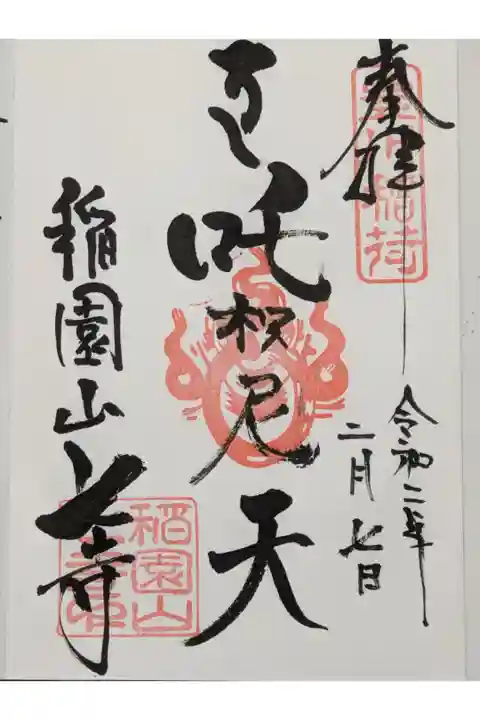 奉拝
令和二年
二月七日
吒枳尼天
稲園山七寺
稲荷
稲園山